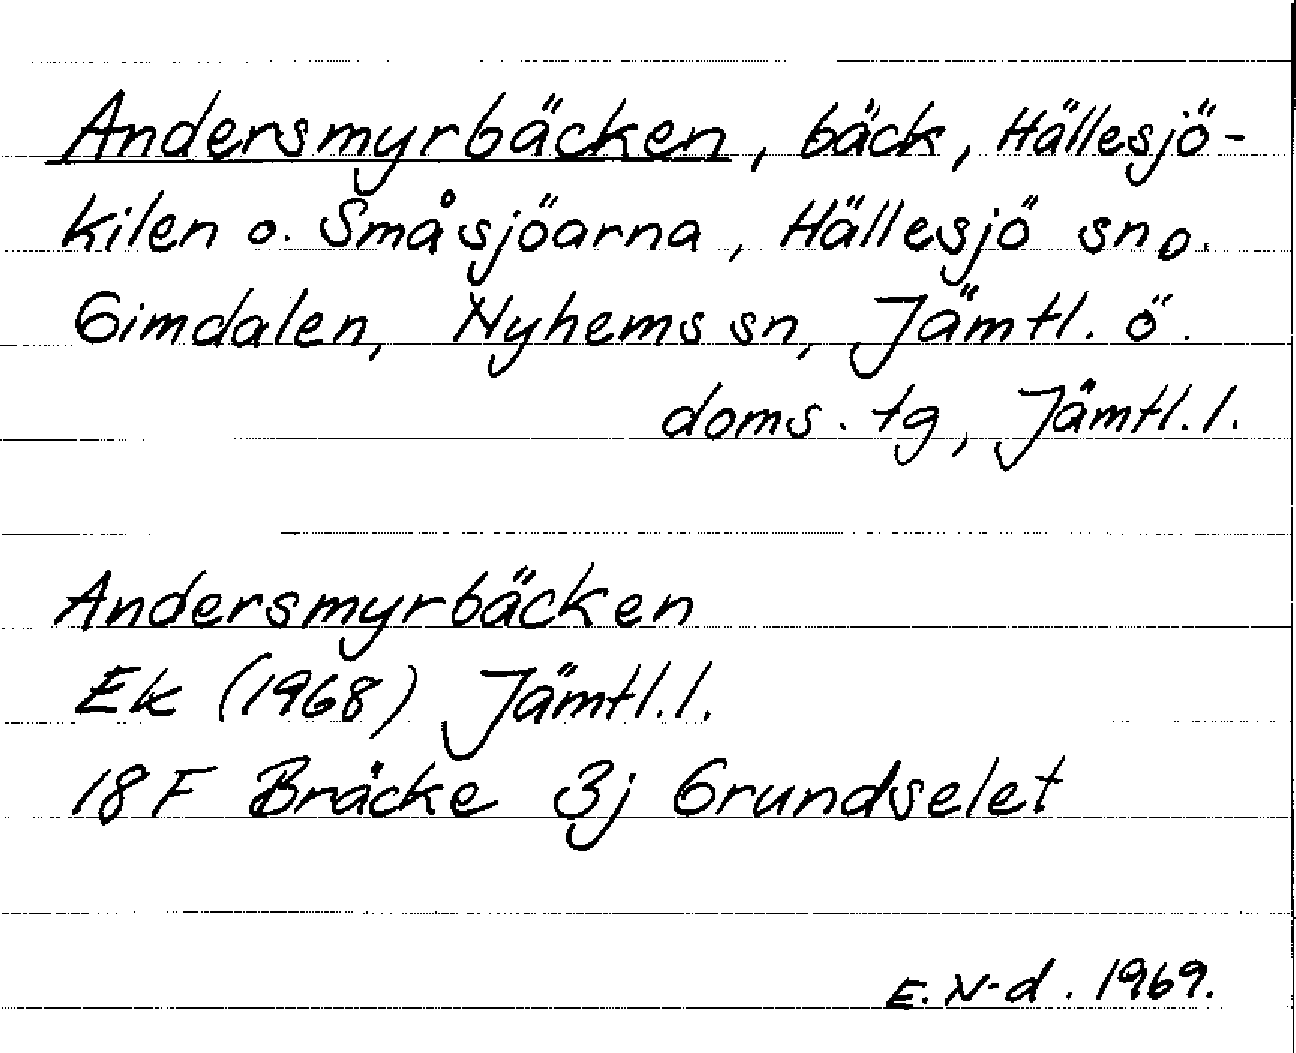 Andersmyrbäcken, bäck, Hällesjö-
kilen o. Småsjöarna, Hällesjö sn o.
Gimdalen, Nyhems sn, Jämtl. ö.
doms. tg, Jämtl. l.
Andersmyrbäcken
Ek (1968) Jämtl. l.
18 F Bräcke 3j Grundselet
E. N-d. 1969.